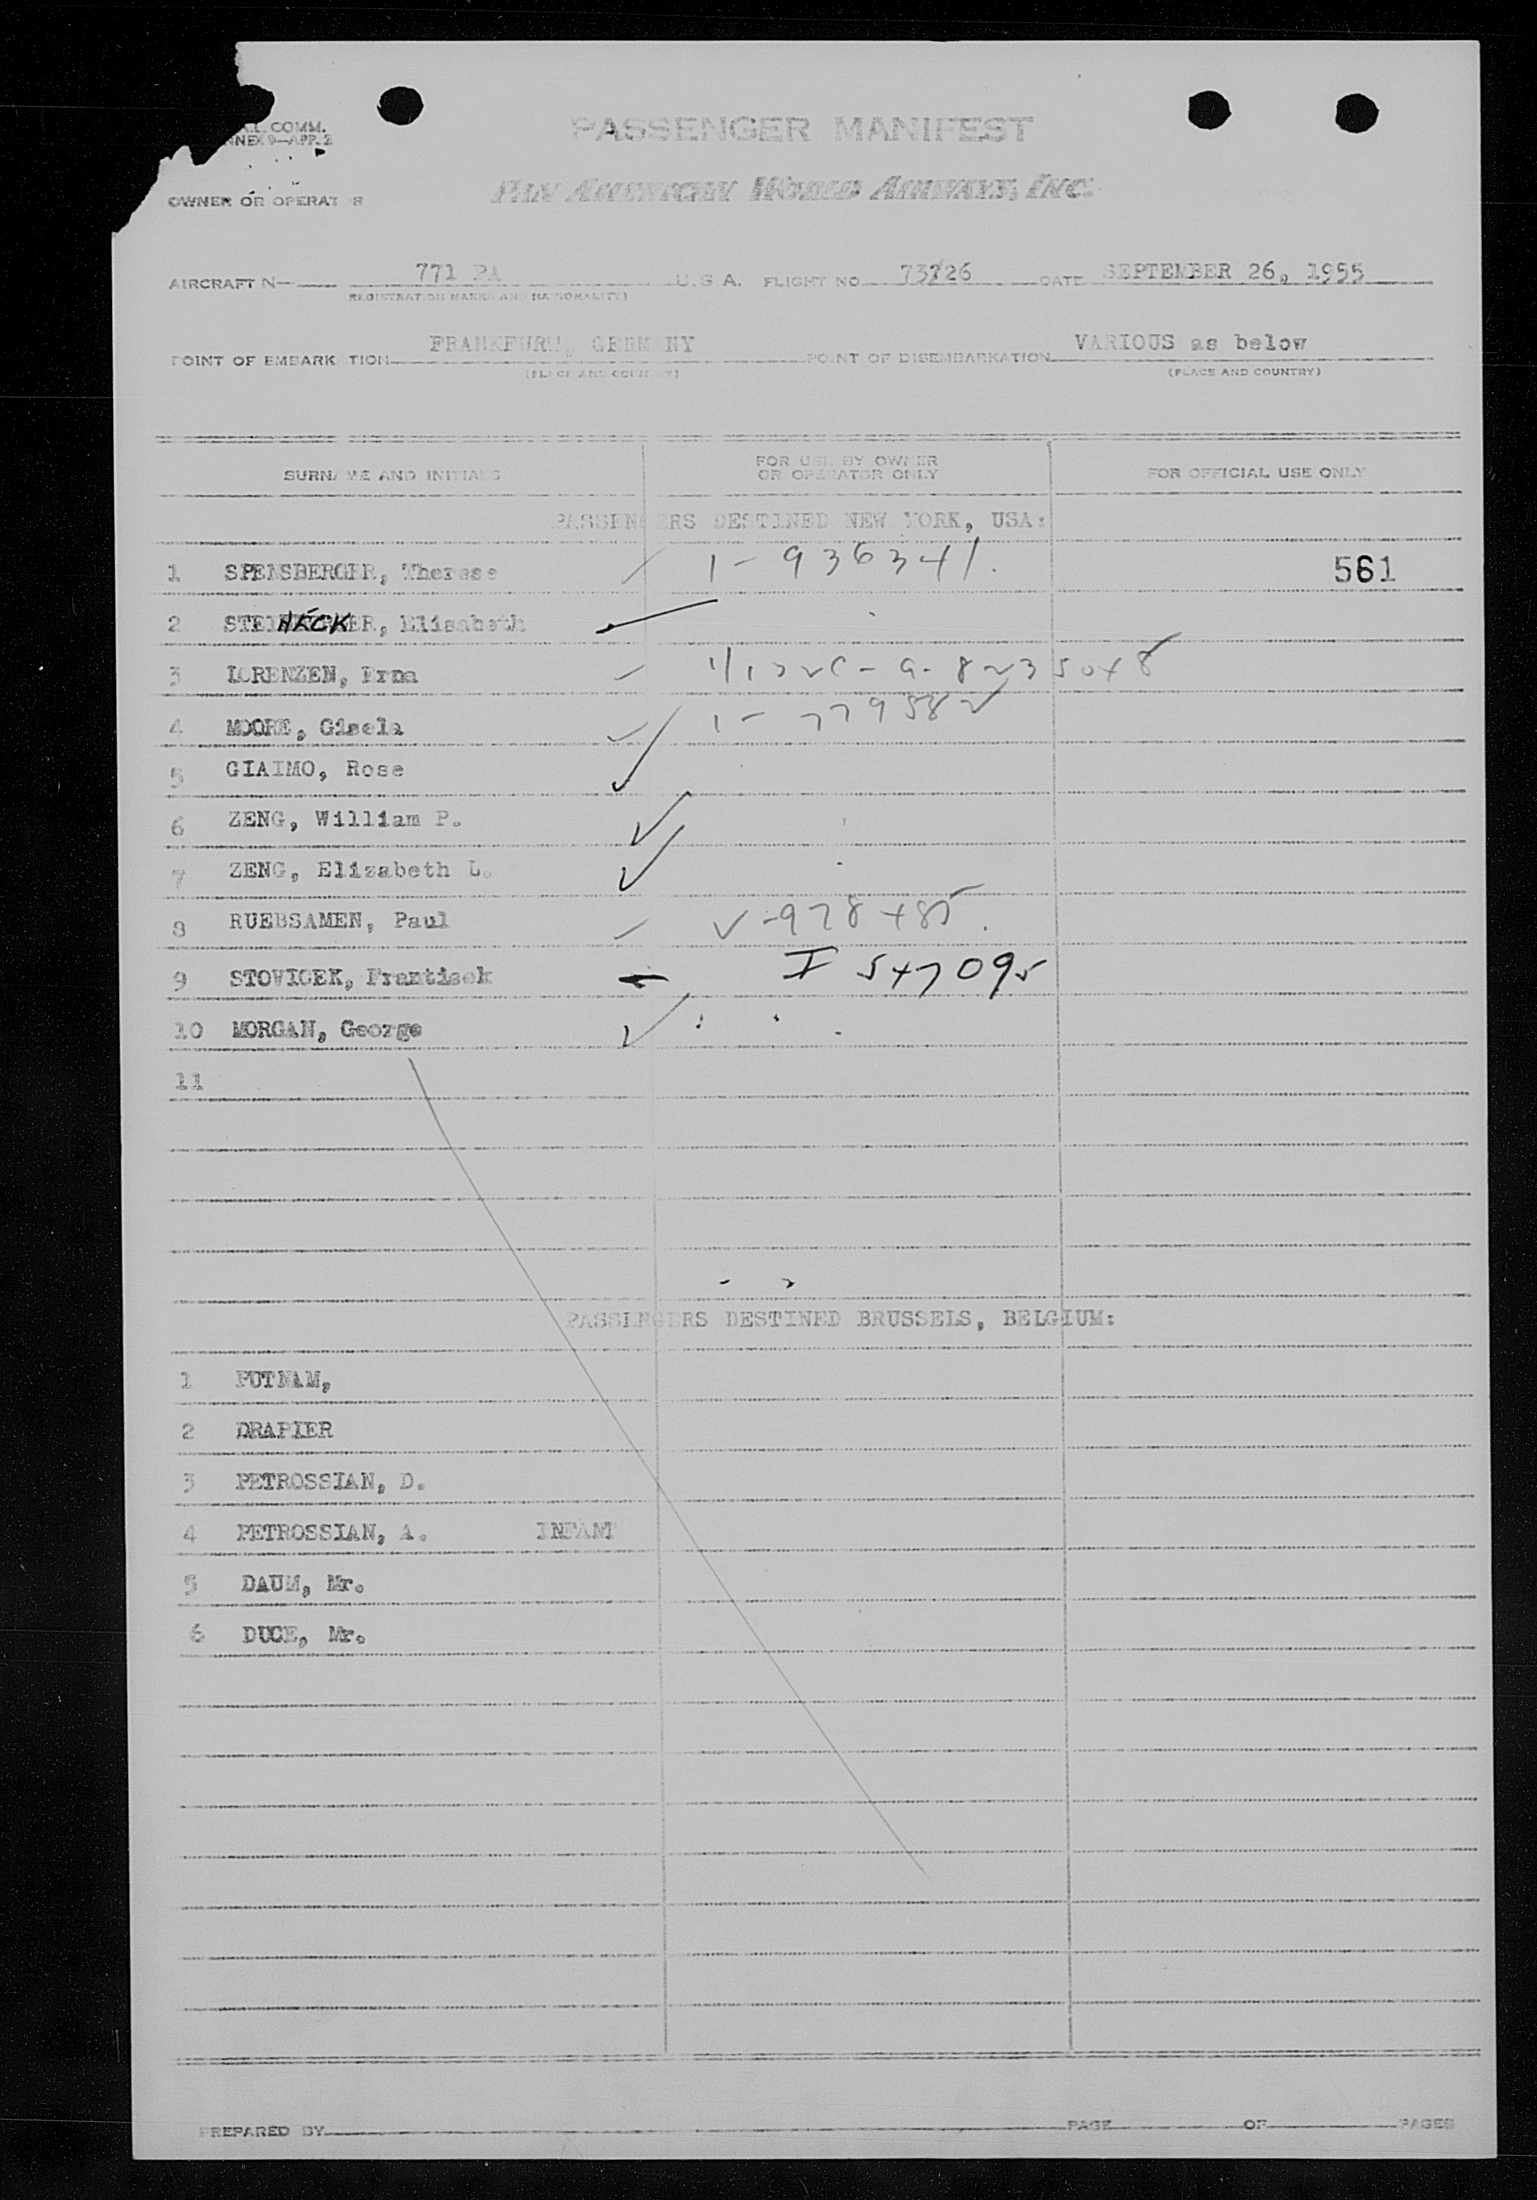 A.L. COMM.
NNEX 9—APP. 2
PASSENGER MANIFEST
OWNER OR OPERAT R
PAN AMERICAN WORLD AIRWAYS, INC.
AIRCRAFT N 771 PA U.S.A. FLIGHT NO 73726 DATE SEPTEMBER 26, 1955
REGISTRATION MARKS AND NATIONALITY)
POINT OF EMBARK TION FRANKFURT, GERM NY POINT OF DISEMBARKATION VARIOUS as below
(PLACE AND COUNTRY) (PLACE AND COUNTRY)
SURNAME AND INITIALS FOR USE BY OWNER OR OPERATOR ONLY FOR OFFICIAL USE ONLY
PASSENGERS DESTINED NEW YORK, USA:
1 SPENSBERGER, Therese 1-936341. 561
2 STEI HÄCK ER, Elisabeth
3 LORENZEN, Erna
4 MOORE, Gisela 1-779582
5 GIAIMO, Rose
6 ZENG, William P.
7 ZENG, Elizabeth L.
8 RUEBSAMEN, Paul V-978485.
9 STOVICEK, Frantisek I 547095
10 MORGAN, George
11
PASSENGERS DESTINED BRUSSELS, BELGIUM:
1 PUTNAM,
2 DRAPIER
3 PETROSSIAN, D.
4 PETROSSIAN, A. INFANT
5 DAUM, Mr.
6 DUCE, Mr.
PREPARED BY PAGE OF PAGES